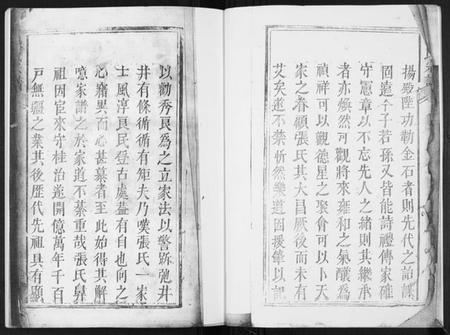 揚殿陛功勒金石者則先代之詒謀
罔遺千子若孫又皆能詩禮傳家確
守憲章以不忘先人之緒則其繼承
者亦煥然可觀將來雍和之氣釀為
禎祥可以觀德星之聚會可以卜天
家之眷顧張氏其大昌厥後而未有
艾矣道不禁忻然樂道因援筆以記
以勸秀良為之立家法以警跅弛井
井有條循循有矩夫乃嘆張氏一家
士風淳民民登古處蓋有自也向之
心齋異而心甚慕者至此始得其解
噫家譜之於家道不綦重哉張氏鼻
祖因宦來守桂治遂開億萬年千百
戶無疆之業其後歷代先祖具有顯